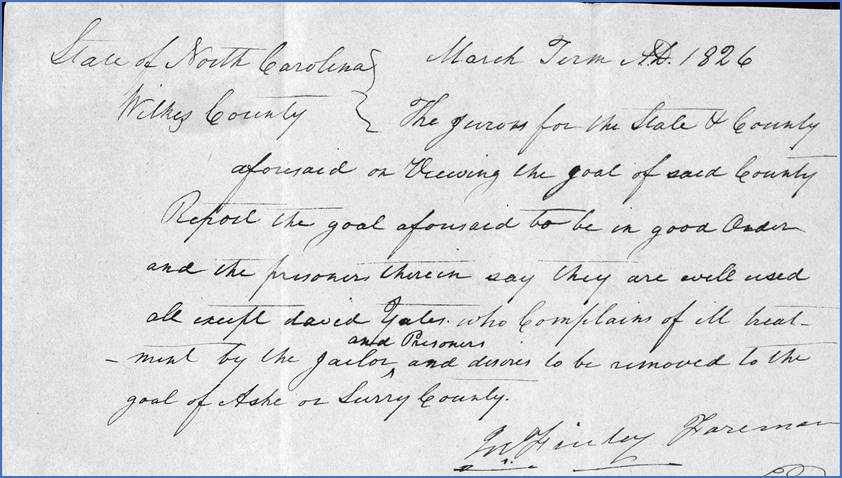 State of North Carolina } March Term AD. 1826
Wilkes County } The Jurors for the State & County
aforesaid on Viewing the goal of said County
Report the goal aforesaid to be in good Order
and the prisoners therein say they are well used
all except david Yates who Complains of ill treat-
and Prisoners
-ment by the Jailor ^ and desires to be removed to the
goal of Ashe or Surry County.
Jno. Finley Foreman